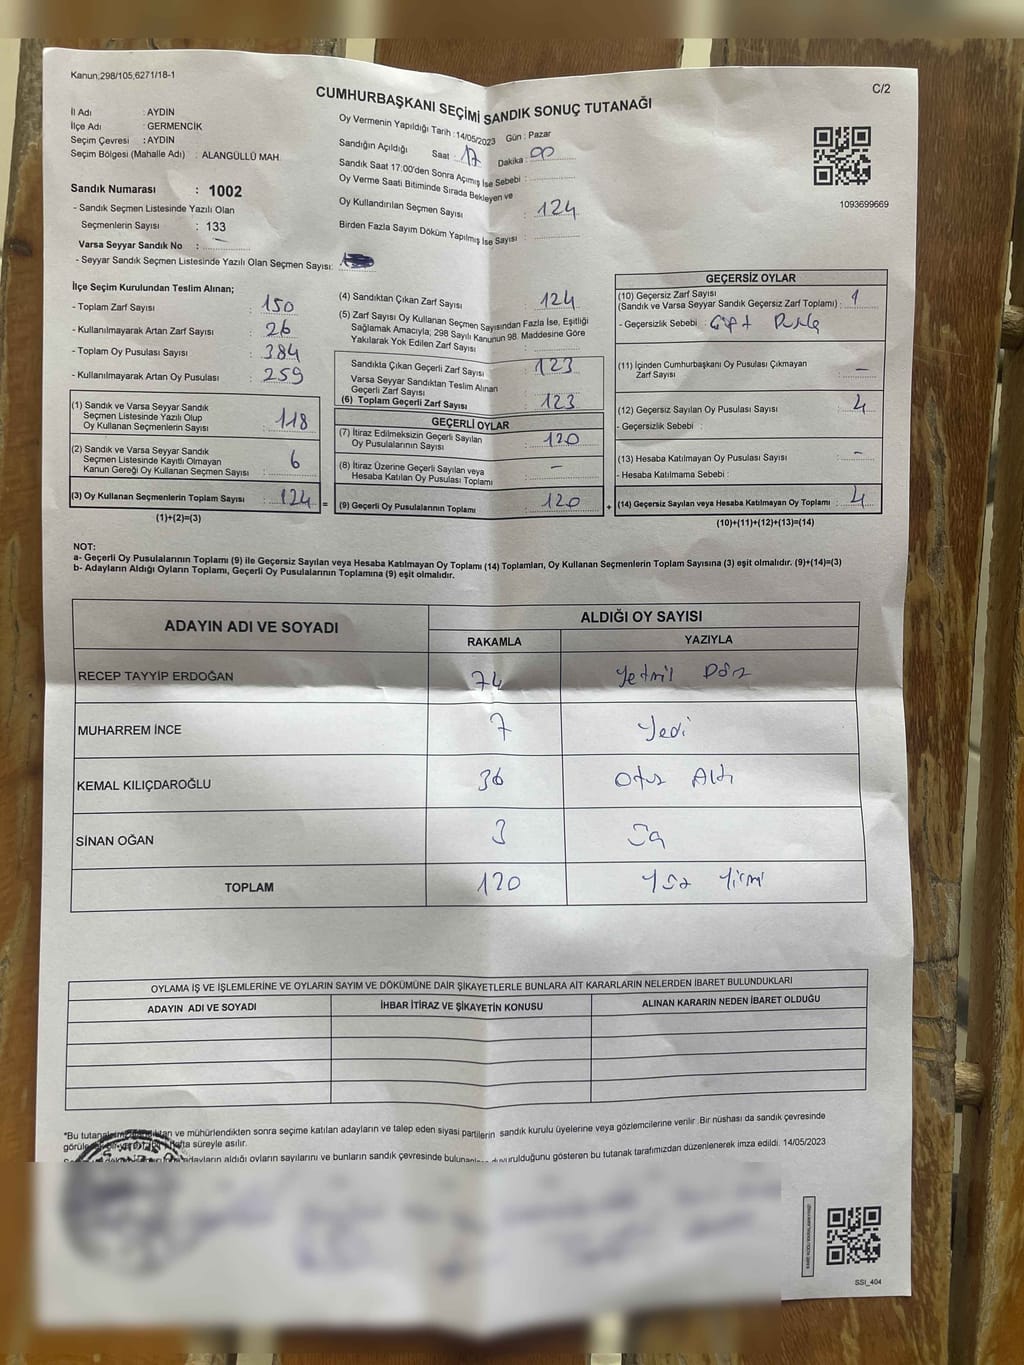 Kanun;298/105,6271/18-1
C/2
CUMHURBAŞKANI SEÇİMİ SANDIK SONUÇ TUTANAĞI
İl Adı : AYDIN
İlçe Adı : GERMENCİK
Seçim Çevresi : AYDIN
Seçim Bölgesi (Mahalle Adı) : ALANGÜLLÜ MAH.
Sandık Numarası : 1002
- Sandık Seçmen Listesinde Yazılı Olan
Seçmenlerin Sayısı : 133
Varsa Seyyar Sandık No : –
- Seyyar Sandık Seçmen Listesinde Yazılı Olan Seçmen Sayısı:
Oy Vermenin Yapıldığı Tarih :14/05/2023 Gün : Pazar
Sandığın Açıldığı Saat : 17 Dakika : 00
Sandık Saat 17:00'den Sonra Açımış İse Sebebi :
Oy Verme Saati Bitiminde Sırada Bekleyen ve
Oy Kullandırılan Seçmen Sayısı : 124
Birden Fazla Sayım Döküm Yapılmış İse Sayısı :
1093699669
İlçe Seçim Kurulundan Teslim Alınan;
- Toplam Zarf Sayısı : 150
- Kullanılmayarak Artan Zarf Sayısı : 26
- Toplam Oy Pusulası Sayısı : 384
- Kullanılmayarak Artan Oy Pusulası : 259
(1) Sandık ve Varsa Seyyar Sandık
Seçmen Listesinde Yazılı Olup
Oy Kullanan Seçmenlerin Sayısı : 118
(2) Sandık ve Varsa Seyyar Sandık
Seçmen Listesinde Kayıtlı Olmayan
Kanun Gereği Oy Kullanan Seçmen Sayısı : 6
(3) Oy Kullanan Seçmenlerin Toplam Sayısı : 124 =
(1)+(2)=(3)
(4) Sandıktan Çıkan Zarf Sayısı : 124
(5) Zarf Sayısı Oy Kullanan Seçmen Sayısından Fazla İse, Eşitliği
Sağlamak Amacıyla; 298 Sayılı Kanunun 98. Maddesine Göre
Yakılarak Yok Edilen Zarf Sayısı :
Sandıkta Çıkan Geçerli Zarf Sayısı : 123
Varsa Seyyar Sandıktan Teslim Alınan
Geçerli Zarf Sayısı :
(6) Toplam Geçerli Zarf Sayısı : 123
GEÇERLİ OYLAR
(7) İtiraz Edilmeksizin Geçerli Sayılan
Oy Pusulalarının Sayısı : 120
(8) İtiraz Üzerine Geçerli Sayılan veya
Hesaba Katılan Oy Pusulası Toplamı : –
(9) Geçerli Oy Pusulalarının Toplamı : 120 +
GEÇERSİZ OYLAR
(10) Geçersiz Zarf Sayısı
(Sandık ve Varsa Seyyar Sandık Geçersiz Zarf Toplamı) : 1
- Geçersizlik Sebebi : Çift Pusula
(11) İçinden Cumhurbaşkanı Oy Pusulası Çıkmayan
Zarf Sayısı : –
(12) Geçersiz Sayılan Oy Pusulası Sayısı : 4
- Geçersizlik Sebebi :
(13) Hesaba Katılmayan Oy Pusulası Sayısı : –
- Hesaba Katılmama Sebebi :
(14) Geçersiz Sayılan veya Hesaba Katılmayan Oy Toplamı : 4
(10)+(11)+(12)+(13)=(14)
NOT:
a- Geçerli Oy Pusulalarının Toplamı (9) ile Geçersiz Sayılan veya Hesaba Katılmayan Oy Toplamı (14) Toplamları, Oy Kullanan Seçmenlerin Toplam Sayısına (3) eşit olmalıdır. (9)+(14)=(3)
b- Adayların Aldığı Oyların Toplamı, Geçerli Oy Pusulalarının Toplamına (9) eşit olmalıdır.
ADAYIN ADI VE SOYADI
ALDIĞI OY SAYISI
RAKAMLA YAZIYLA
RECEP TAYYİP ERDOĞAN 74 Yetmiş Dört
MUHARREM İNCE 7 Yedi
KEMAL KILIÇDAROĞLU 36 Otuz Altı
SİNAN OĞAN 3 Üç
TOPLAM 120 Yüz Yirmi
OYLAMA İŞ VE İŞLEMLERİNE VE OYLARIN SAYIM VE DÖKÜMÜNE DAİR ŞİKAYETLERLE BUNLARA AİT KARARLARIN NELERDEN İBARET BULUNDUKLARI
ADAYIN ADI VE SOYADI İHBAR İTİRAZ VE ŞİKAYETİN KONUSU ALINAN KARARIN NEDEN İBARET OLDUĞU
*Bu tutanak ve mühürlendikten sonra seçime katılan adayların ve talep eden siyasi partilerin sandık kurulu üyelerine veya gözlemcilerine verilir. Bir nüshası da sandık çevresinde
hafta süreyle asılır.
adayların aldığı oyların sayılarını ve bunların sandık çevresinde duyurulduğunu gösteren bu tutanak tarafımızdan düzenlenerek imza edildi. 14/05/2023
SSI_404